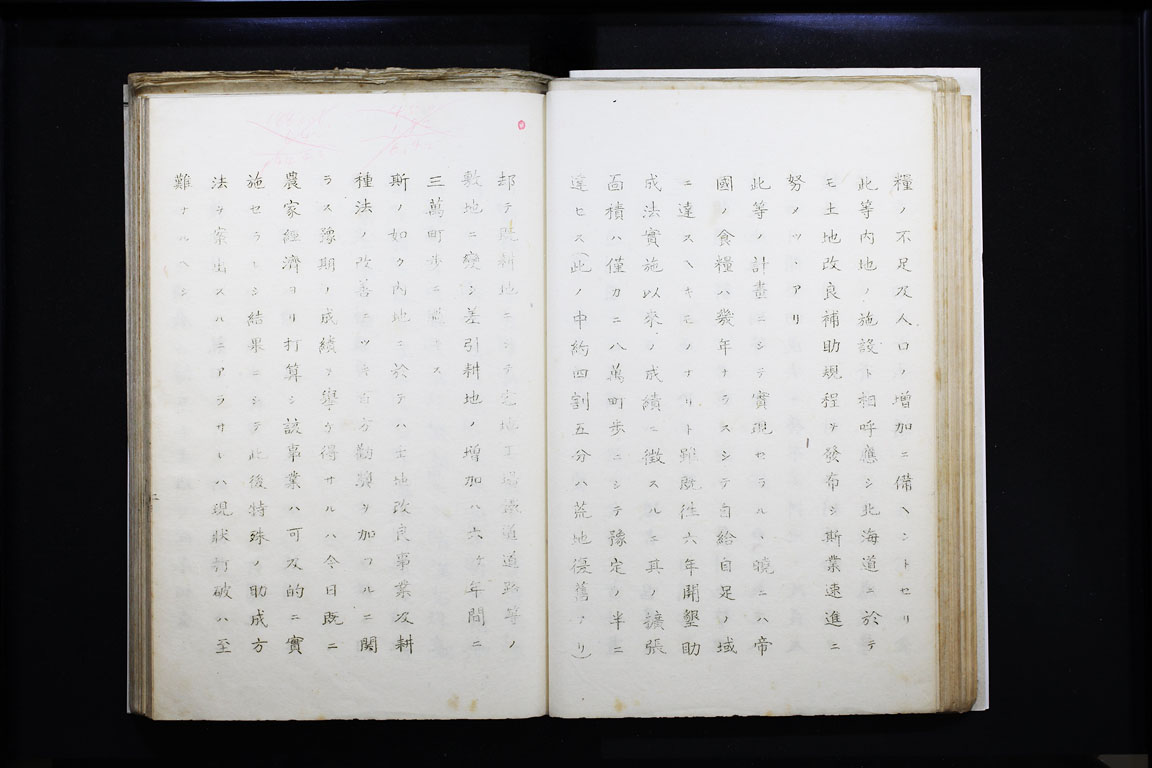 糧ノ不足及人口ノ増加ニ備ヘントセリ
此等内地ノ施設ト相呼應シ北海道ニ於テ
モ土地改良補助規程ヲ發布シ斯業速進ニ
努メツヽアリ
此等ノ計畫ニシテ實現セラルヽ曉ニハ帝
國ノ食糧ハ幾年ナラスシテ自給自足ノ域
ニ達スヘキモノナリト雖既往六年開墾助
成法實施以來ノ成績ニ徴スルニ其ノ擴張
面積ハ僅カニ八萬町歩ニシテ豫定ノ半ニ
達セス(此ノ中約四割五分ハ荒地復舊ナリ)
却テ既耕地ニシテ宅地工場鐵道道路等ノ
敷地ニ變シ差引耕地ノ増加ハ六ケ年間ニ
三萬町歩ニ過キス
斯ノ如ク内地ニ於テハ土地改良事業及耕
種法ノ改善ニツキ百方勸奬ヲ加フルニ関
ラス豫期ノ成績ヲ擧ケ得サルハ今日既ニ
農家經濟ヨリ打算シ該事業ハ可及的ニ實
施セラレシ結果ニシテ此後特殊ノ助成方
法ヲ案出スルニアラサレハ現狀打破ハ至
難ナルヘシ